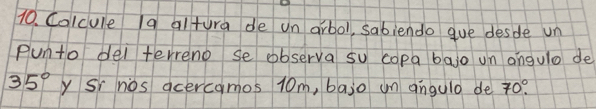 10. Colcule la altura de un árbol, sabiendo que desde un
punto del terreno se observa su copa bajo un ángulo de
35° y si nos acercamos 10m, bajo un ángulo de 70°.